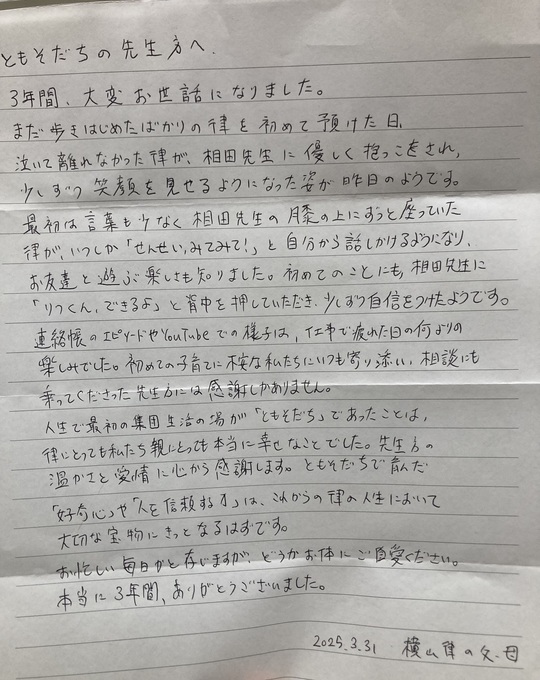 ともそだちの先生方へ.
3年間、大変お世話になりました。
まだ歩きはじめたばかりの律を初めて預けた日、
泣いて離れなかった律が、相田先生に優しく抱っこをされ、
少しずつ笑顔を見せるようになった姿が昨日のようです。
最初は言葉も少なく相田先生の膝の上にずっと座っていた
律が、いつしか「せんせい、みてみて!」と自分から話しかけるようになり、
お友達と遊ぶ楽しさも知りました。初めてのことにも、相田先生に
「りっくん、できるよ」と背中を押していただき、少しずつ自信をつけたようです。
連絡帳のエピソードやYouTubeでの様子は、仕事で疲れた日の何よりの
楽しみでした。初めての子育てに不安な私たちにいつも寄り添い、相談にも
乗ってくださった先生方には感謝しかありません。
人生で最初の集団生活の場が「ともそだち」であったことは、
律にとっても私たち親にとっても本当に幸せなことでした。先生方の
温かさと愛情に心から感謝します。ともそだちで育んだ
「好奇心」や「人を信頼する力」は、これからの律の人生において
大切な宝物にきっとなるはずです。
お忙しい毎日かと存じますが、どうかお体にご自愛ください。
本当に3年間、ありがとうございました。
2025.3.31 横山律の父、母